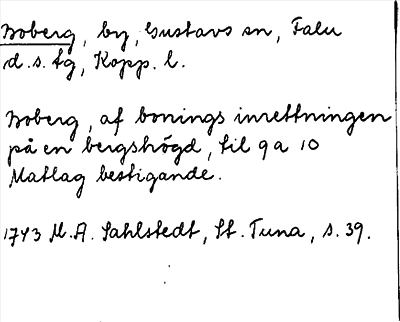 Boberg, by, Gustavs sn, Falu
d.s. fg, Kopp. l.
Boberg, af bonings inrettningen
på en bergshögd, til 9 a 10
Matlag bestigande.
1743 U.A. Sahlstedt, St. Tuna, s. 39.